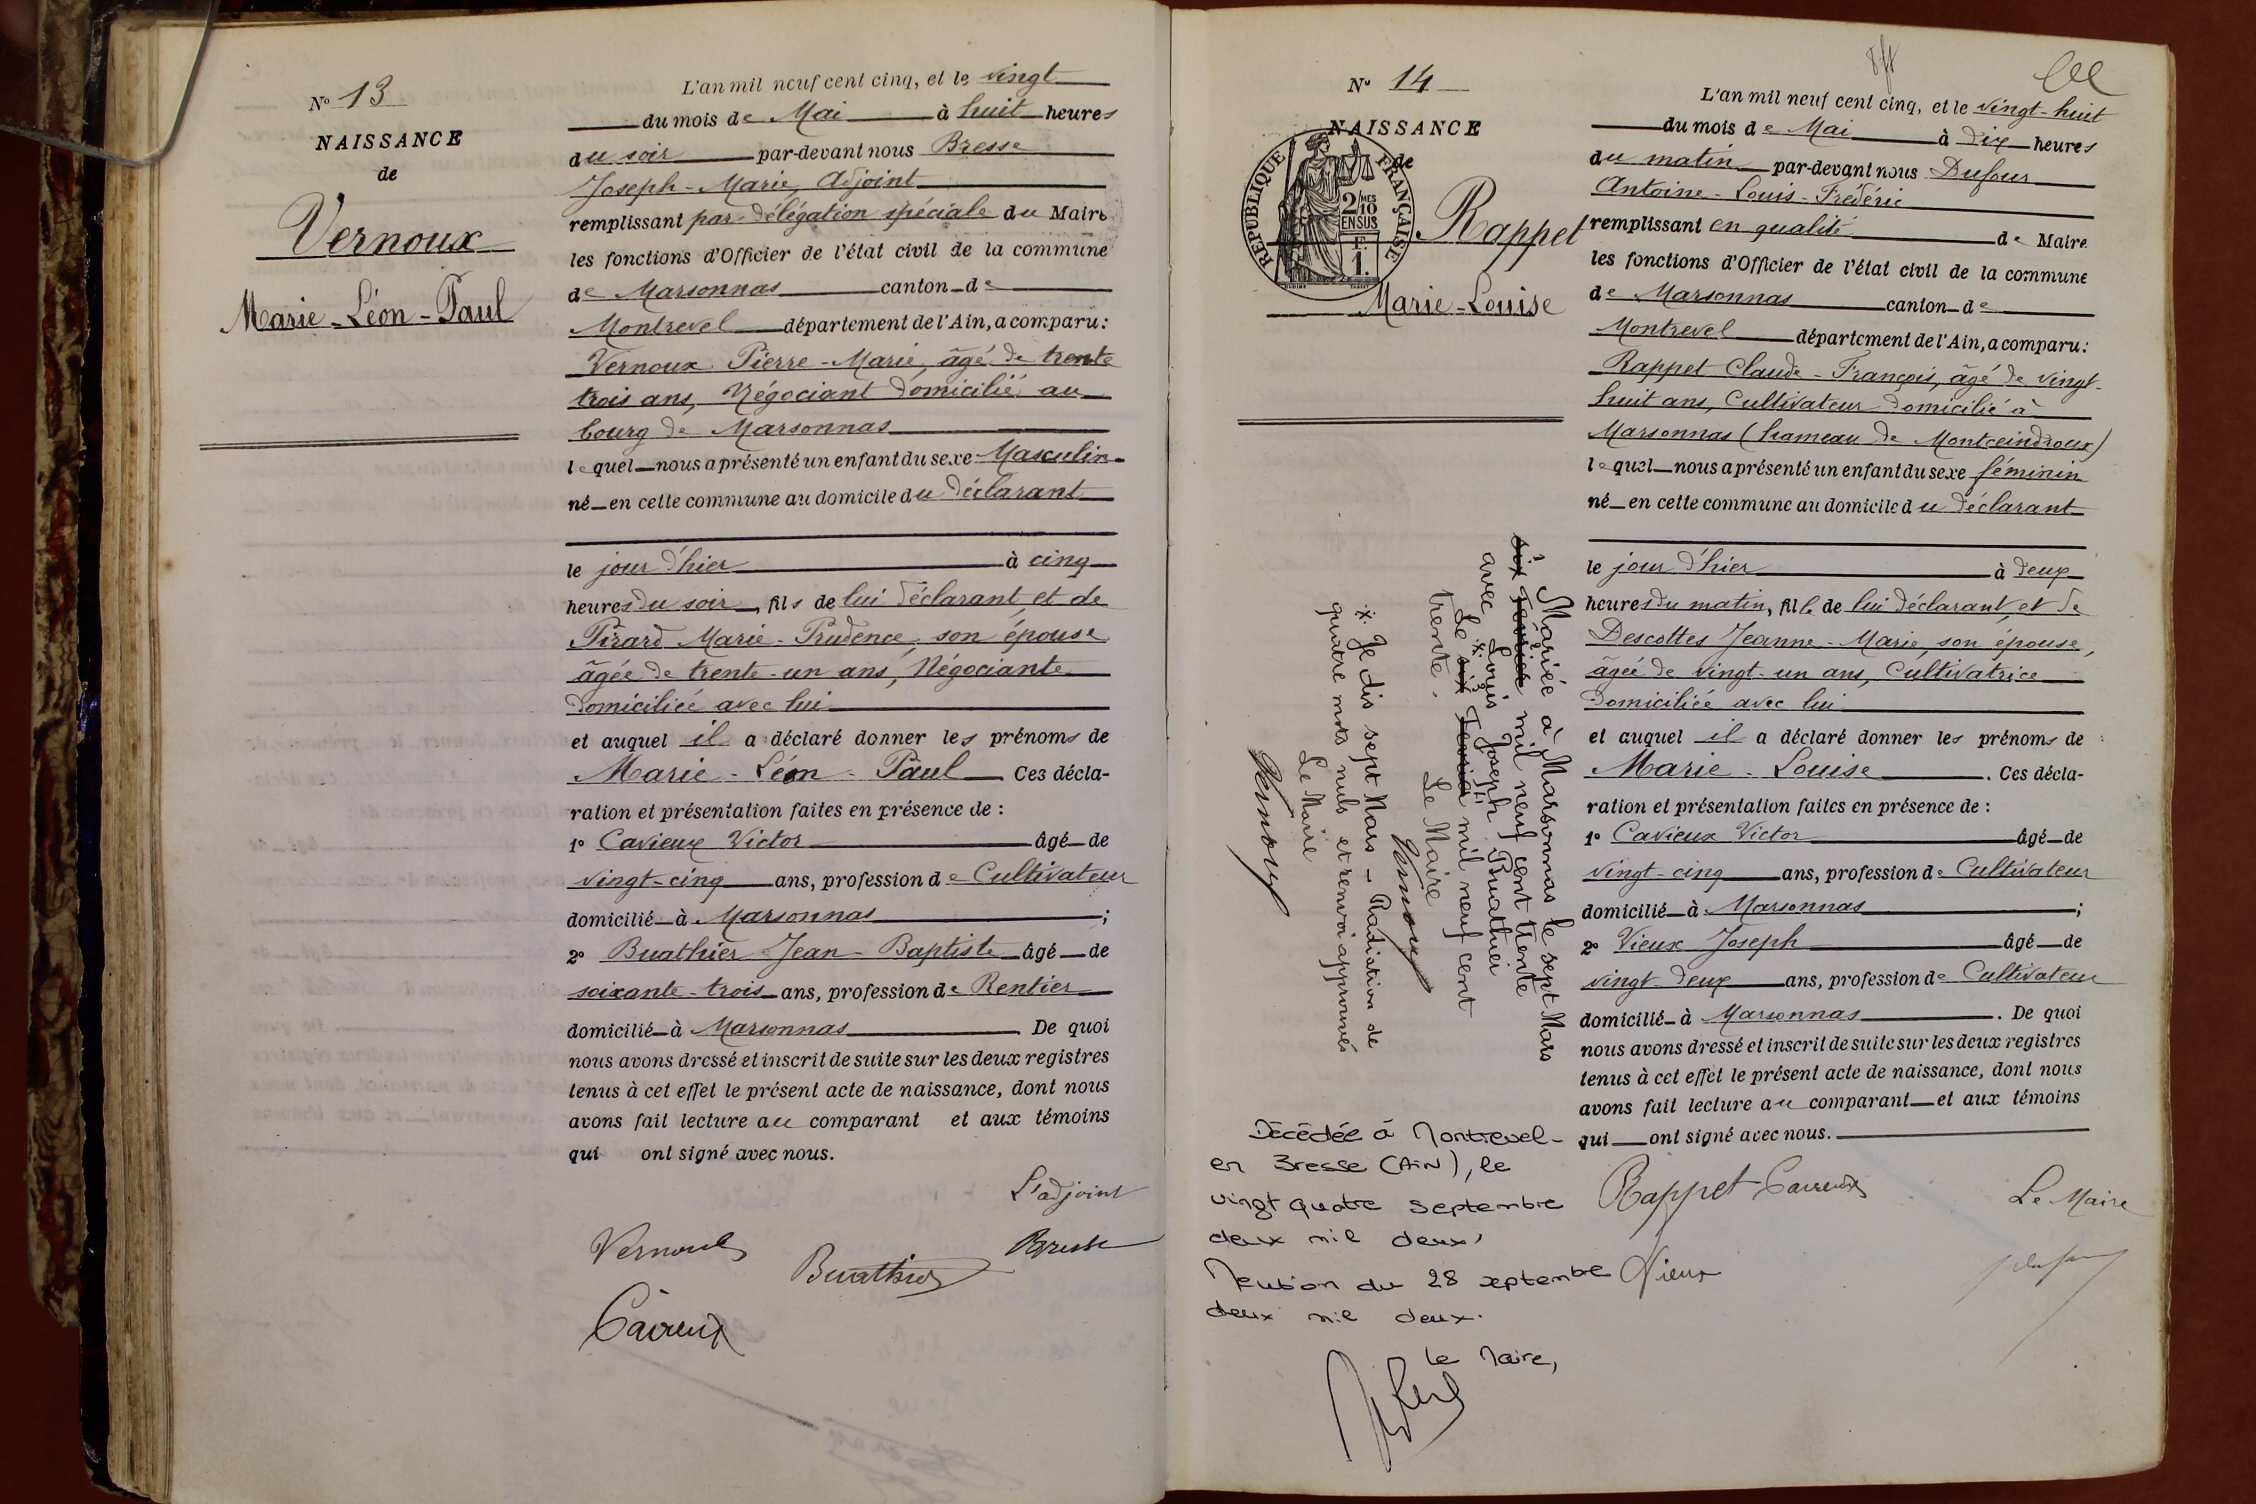 N° 13
NAISSANCE
de
Vernoux
Marie-Léon-Paul
L'an mil neuf cent cinq, et le vingt
du mois de Mai à huit heures
du soir par-devant nous Bresse
Joseph-Marie, Adjoint
remplissant par délégation spéciale du Maire
les fonctions d'Officier de l'état civil de la commune
de Marsonnas canton de
Montrevel département de l'Ain, a comparu:
Vernoux Pierre-Marie, âgé de trente
trois ans, Négociant domicilié au
bourg de Marsonnas
lequel nous a présenté un enfant du sexe Masculin
né en cette commune au domicile du déclarant
le jour d'hier à cinq
heures du soir, fils de lui déclarant et de
Pirard Marie-Prudence, son épouse
âgée de trente-un ans, Négociante
domiciliée avec lui
et auquel il a déclaré donner les prénoms de
Marie-Léon-Paul Ces décla-
ration et présentation faites en présence de :
1° Cavieux Victor âgé de
vingt-cinq ans, profession de Cultivateur
domicilié à Marsonnas ;
2° Buathier Jean-Baptiste âgé de
soixante-trois ans, profession de Rentier
domicilié à Marsonnas De quoi
nous avons dressé et inscrit de suite sur les deux registres
tenus à cet effet le présent acte de naissance, dont nous
avons fait lecture au comparant et aux témoins
qui ont signé avec nous.
L'adjoint
Vernoux
Buathier
Bresse
Cavieux
N° 14
NAISSANCE
de
RÉPUBLIQUE FRANÇAISE
2/MES
10
EN SUS
F.
1.
Rappet
Marie-Louise
L'an mil neuf cent cinq, et le vingt-huit
du mois de Mai à dix heures
du matin par-devant nous Dufour
Antoine-Louis-Frédéric
remplissant en qualité de Maire
les fonctions d'Officier de l'état civil de la commune
de Marsonnas canton de
Montrevel département de l'Ain, a comparu:
Rappet Claude-François, âgé de vingt-
huit ans, Cultivateur domicilié à
Marsonnas (hameau de Montceindroux)
lequel nous a présenté un enfant du sexe féminin
né en cette commune au domicile du déclarant
le jour d'hier à deux
heures du matin, fille de lui déclarant et de
Descottes Jeanne-Marie, son épouse,
âgée de vingt-un ans, Cultivatrice
domiciliée avec lui
et auquel il a déclaré donner les prénoms de
Marie-Louise . Ces décla-
ration et présentation faites en présence de :
1° Cavieux Victor âgé de
vingt-cinq ans, profession de Cultivateur
domicilié à Marsonnas ;
2° Vieux Joseph âgé de
vingt-deux ans, profession de Cultivateur
domicilié à Marsonnas . De quoi
nous avons dressé et inscrit de suite sur les deux registres
tenus à cet effet le présent acte de naissance, dont nous
avons fait lecture au comparant et aux témoins
qui ont signé avec nous.
Rappet Cavieux
Le Maire
Vieux
Mariée à Marsonnas le sept Mars
six Février mil neuf cent trente
avec Louis Joseph Buathier
Le six Février mil neuf cent
trente. Le Maire
Vernoux
※ Je dis sept Mars - Radiation de
quatre mots nuls et renvoi approuvés
Le Maire
Vernoux
Décédée à Montrevel-
en Bresse (Ain), le
vingt quatre septembre
deux mil deux,
Mention du 28 septembre
deux mil deux.
Le Maire,